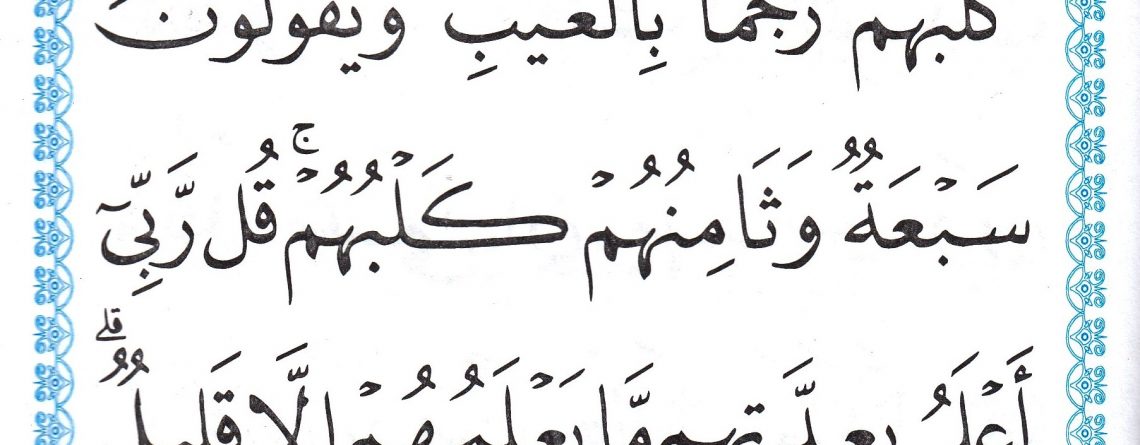 كلبهم رجما بِالغيبِ ويقولونَ
سَبْعَةٌ وَثَامِنُهُمْ كَلْبُهُمْ ۚ قُل رَّبِّىٓ
أَعْلَمُ بعدَّتهم مَّا يَعْلَمُهُمْ إلَّا قَليلٌ ۗ